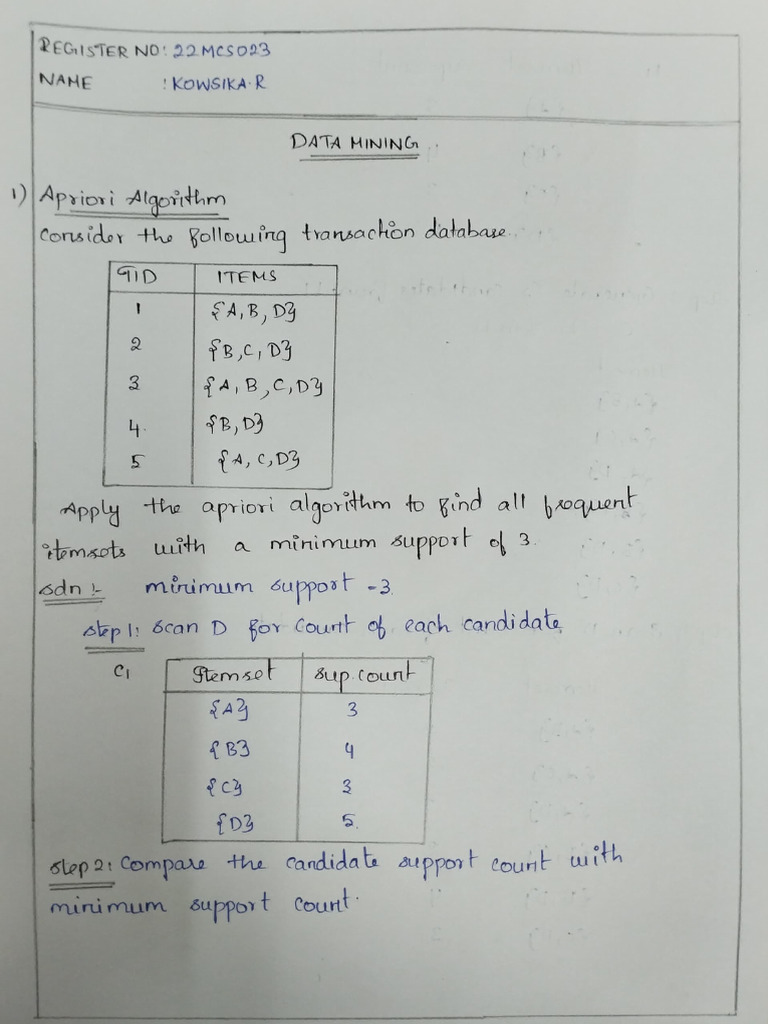 REGISTER NO: 22MCS023
NAME : KOWSIKA.R
DATA MINING.
1) Apriori Algorithm
Consider the following transaction database.
TID ITEMS
1 {A, B, D}
2 {B, C, D}
3 {A, B, C, D}
4. {B, D}
5 {A, C, D}
Apply the apriori algorithm to find all frequent
itemsets with a minimum support of 3.
Soln :- minimum support -3.
Step 1: Scan D for count of each candidate
C1 Itemset Sup.count
{A} 3
{B} 4
{C} 3
{D} 5.
Step 2: Compare the candidate support count with
minimum support count.